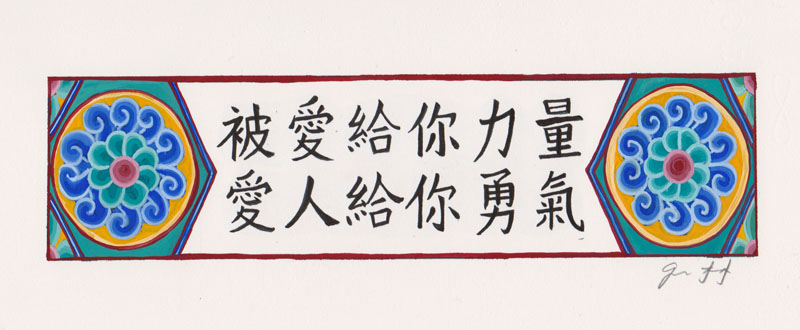 被愛給你力量
愛人給你勇氣